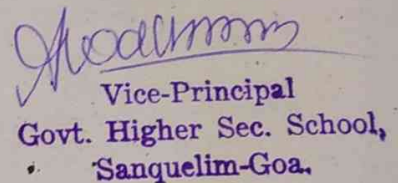 Vice-Principal
Govt. Higher Sec. School,
Sanquelim-Goa.